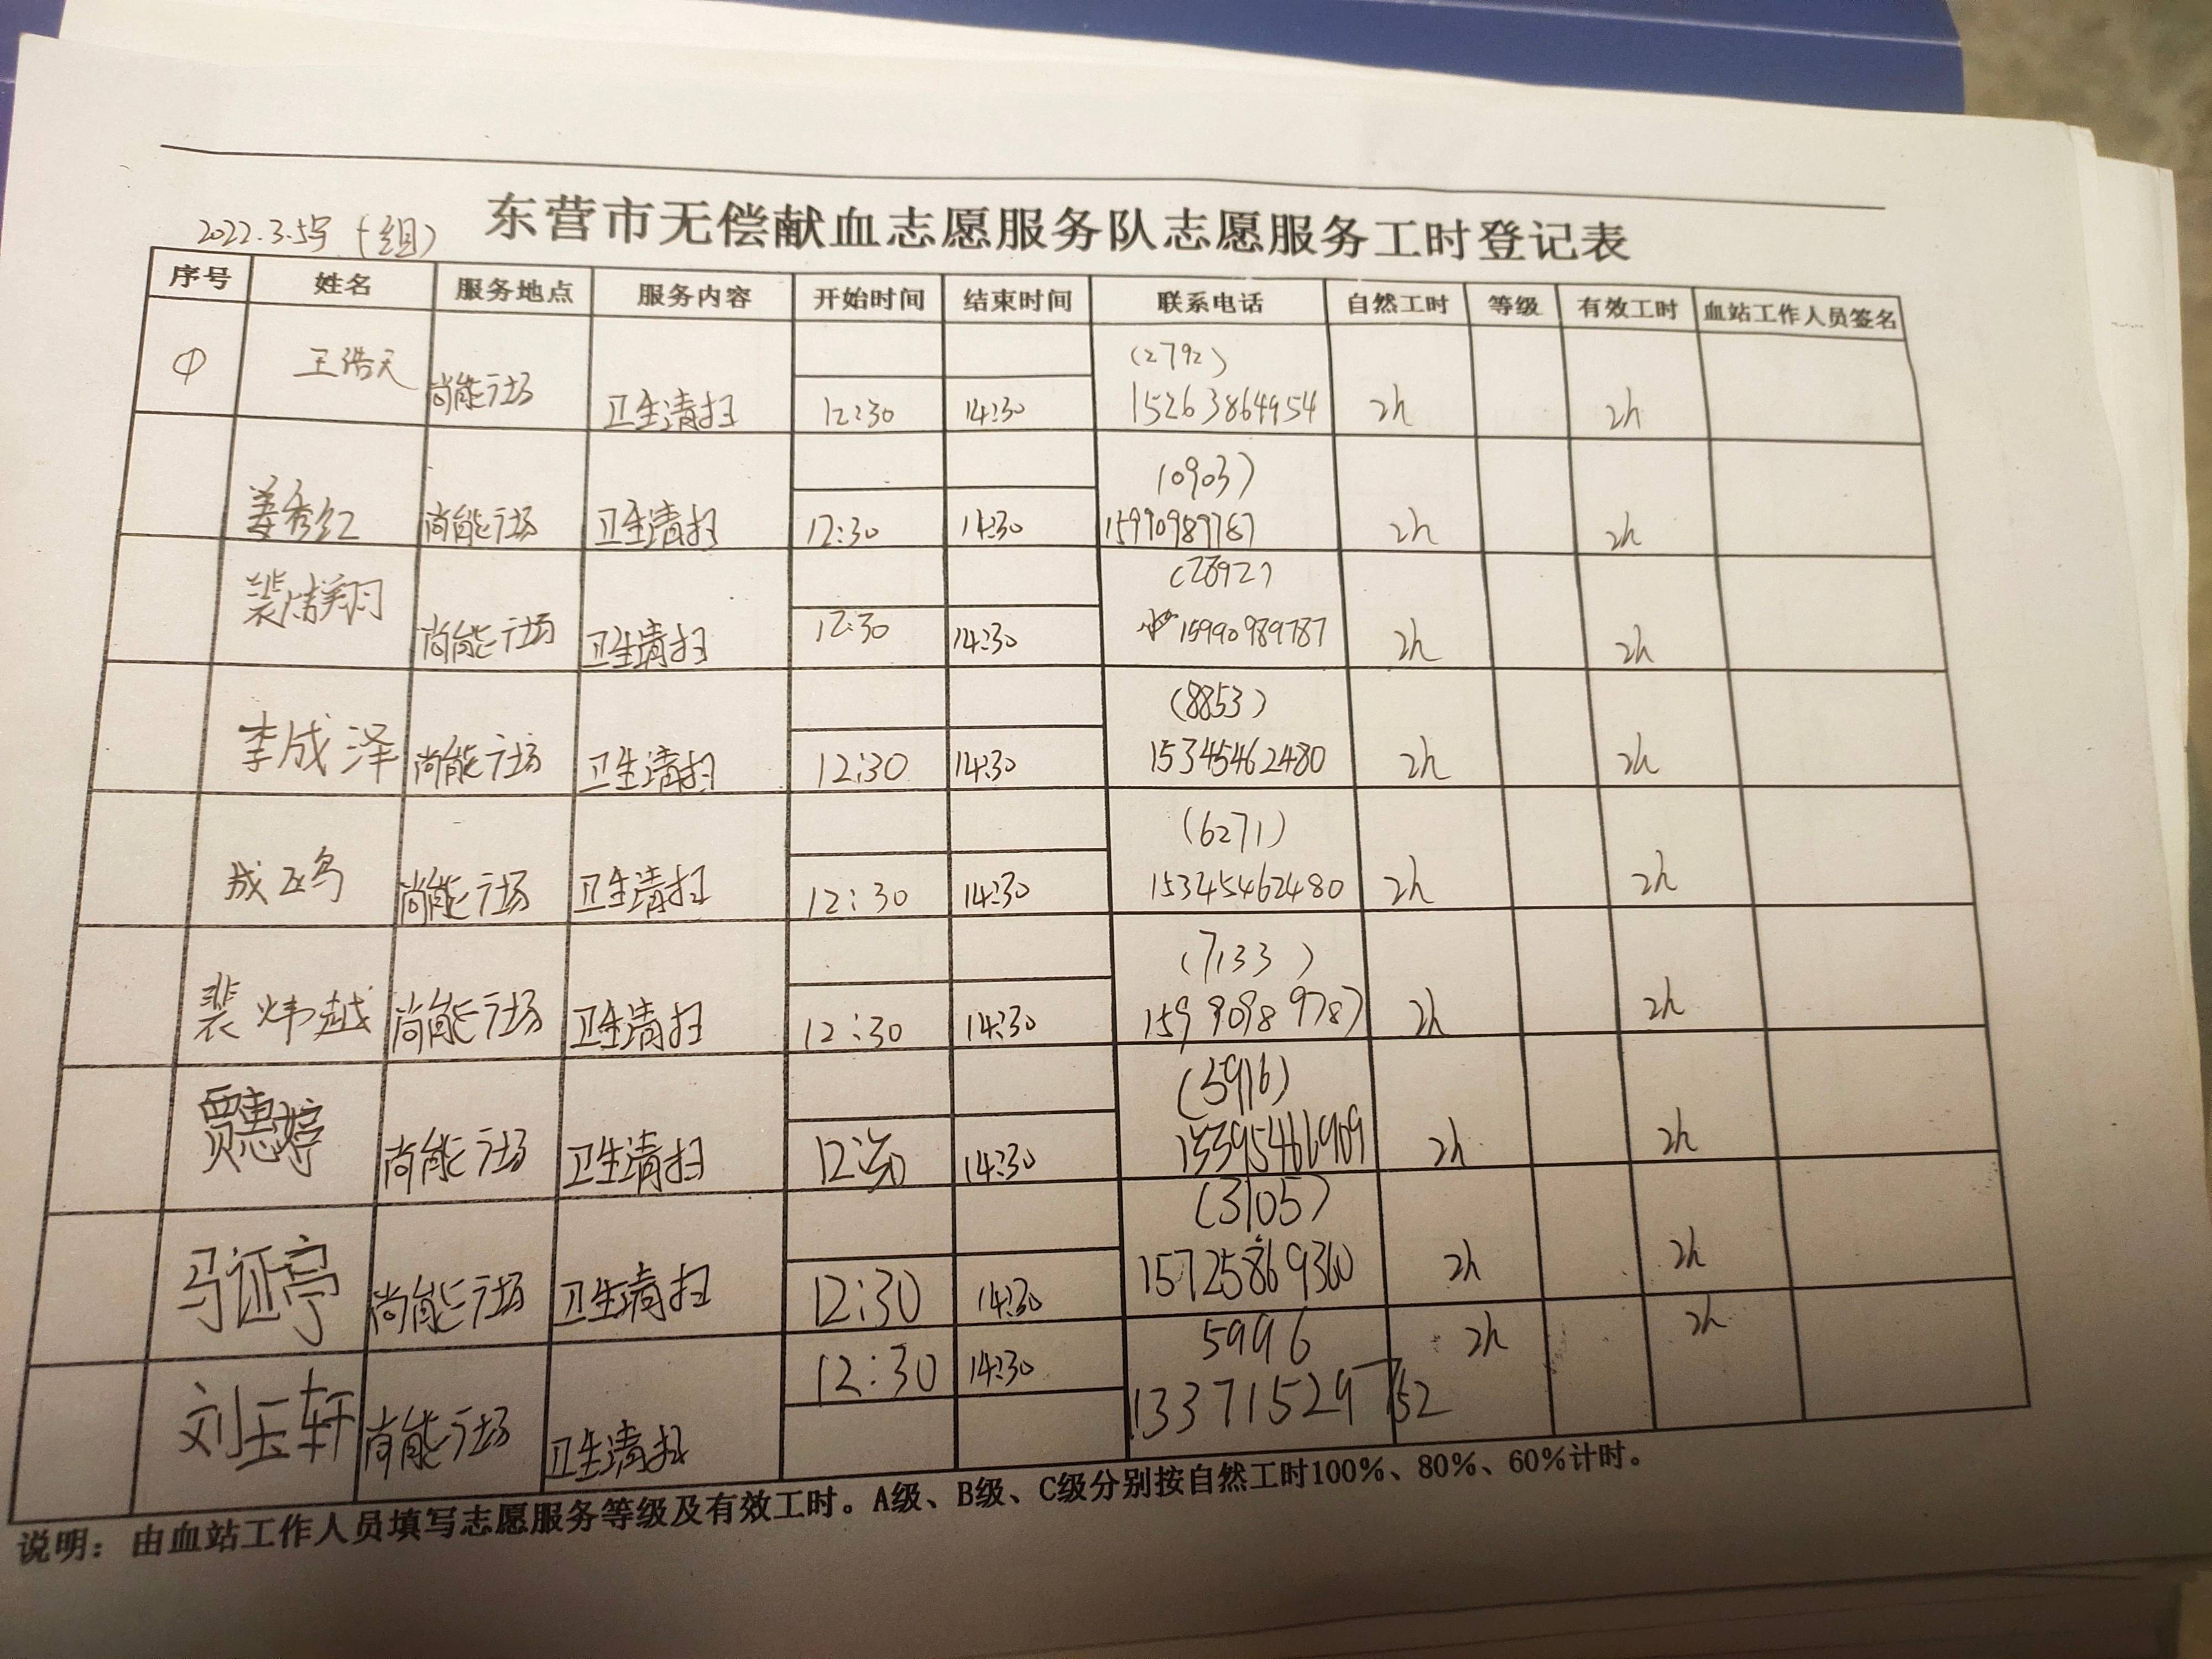 东营市无偿献血志愿服务队志愿服务工时登记表
2022.3.5号 (组)
序号 姓名 服务地点 服务内容 开始时间 结束时间 联系电话 自然工时 等级 有效工时 血站工作人员签名
① 王浩天 尚能广场 卫生清扫 12:30 14:30 (2792) 15263864954 2h 2h
姜秀红 尚能广场 卫生清扫 12:30 14:30 (0903) 15990989787 2h 2h
尚能广场 卫生清扫 12:30 14:30 15990989787 2h 2h
李成泽 尚能广场 卫生清扫 12:30 14:30 (8853) 15345462480 2h 2h
尚能广场 卫生清扫 12:30 14:30 (6271) 15345462480 2h 2h
裴炜越 尚能广场 卫生清扫 12:30 14:30 (7133) 15990989787 2h 2h
贾惠婷 尚能广场 卫生清扫 12:30 14:30 (5916) 15395466909 2h 2h
马证亭 尚能广场 卫生清扫 12:30 14:30 (3105) 15725869360 2h 2h
刘玉轩 尚能广场 卫生清扫 12:30 14:30 5996 13371529752 2h 2h
说明：由血站工作人员填写志愿服务等级及有效工时。A级、B级、C级分别按自然工时100%、80%、60%计时。